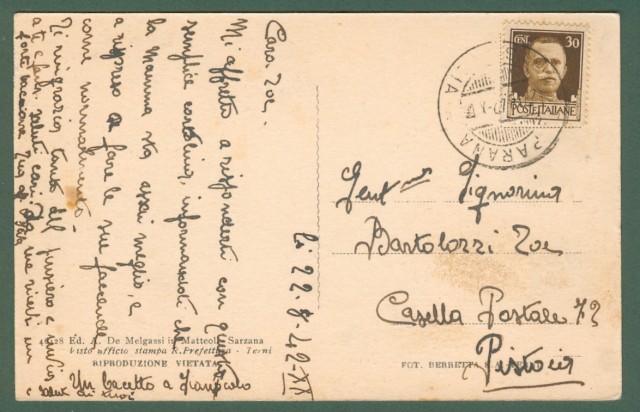 Cara Zoe,
Mi affretto a risponderti con questa
semplice cartolina, informandoti che
la mamma sta assai meglio, e
a ripreso a fare le sue faccende
come normalmente.
Ti ringrazio tanto del pensiero e
a te saluti cari, da me ricevi un
forte bacione
Un bacetto a Giancarlo
e saluti
li 22-8-42-XX
CENT. 30
POSTE ITALIANE
SARZANA
Gent.ma Signorina
Bartolozzi Zoe
Casella Postale 72
Pistoia
4028 Ed. A. De Melgassi in Matteoli, Sarzana
Visto ufficio stampa R. Prefettura - Terni
RIPRODUZIONE VIETATA
FOT. BERRETTA